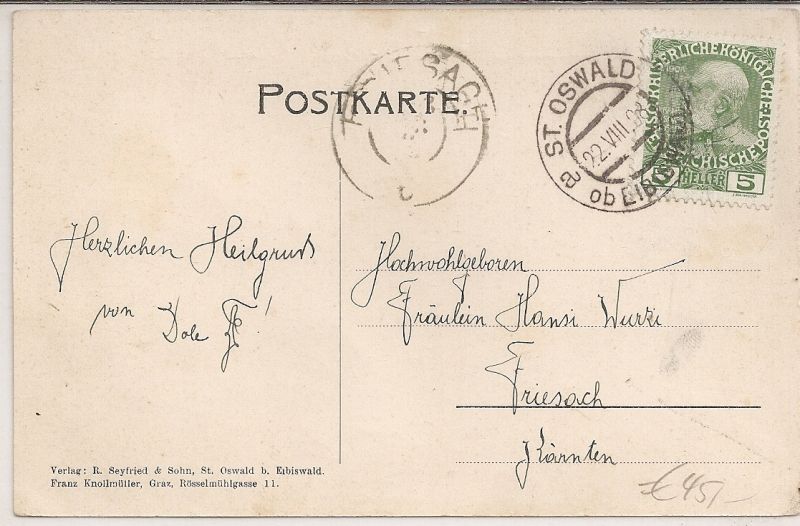 POSTKARTE.
FRIESACH
ST. OSWALD
ob EIBISWALD
a
22.VIII.08
KAISERLICHE KÖNIGLICHE
ÖSTERREICHISCHE POST
5 HELLER 5
Herzlichen Heilgruß
von
Hochwohlgeboren
Fräulein Hansi Wurzi
Friesach
Kärnten
Verlag: R. Seyfried & Sohn, St. Oswald b. Eibiswald.
Franz Knollmüller, Graz, Rösselmühlgasse 11.
€ 45,-